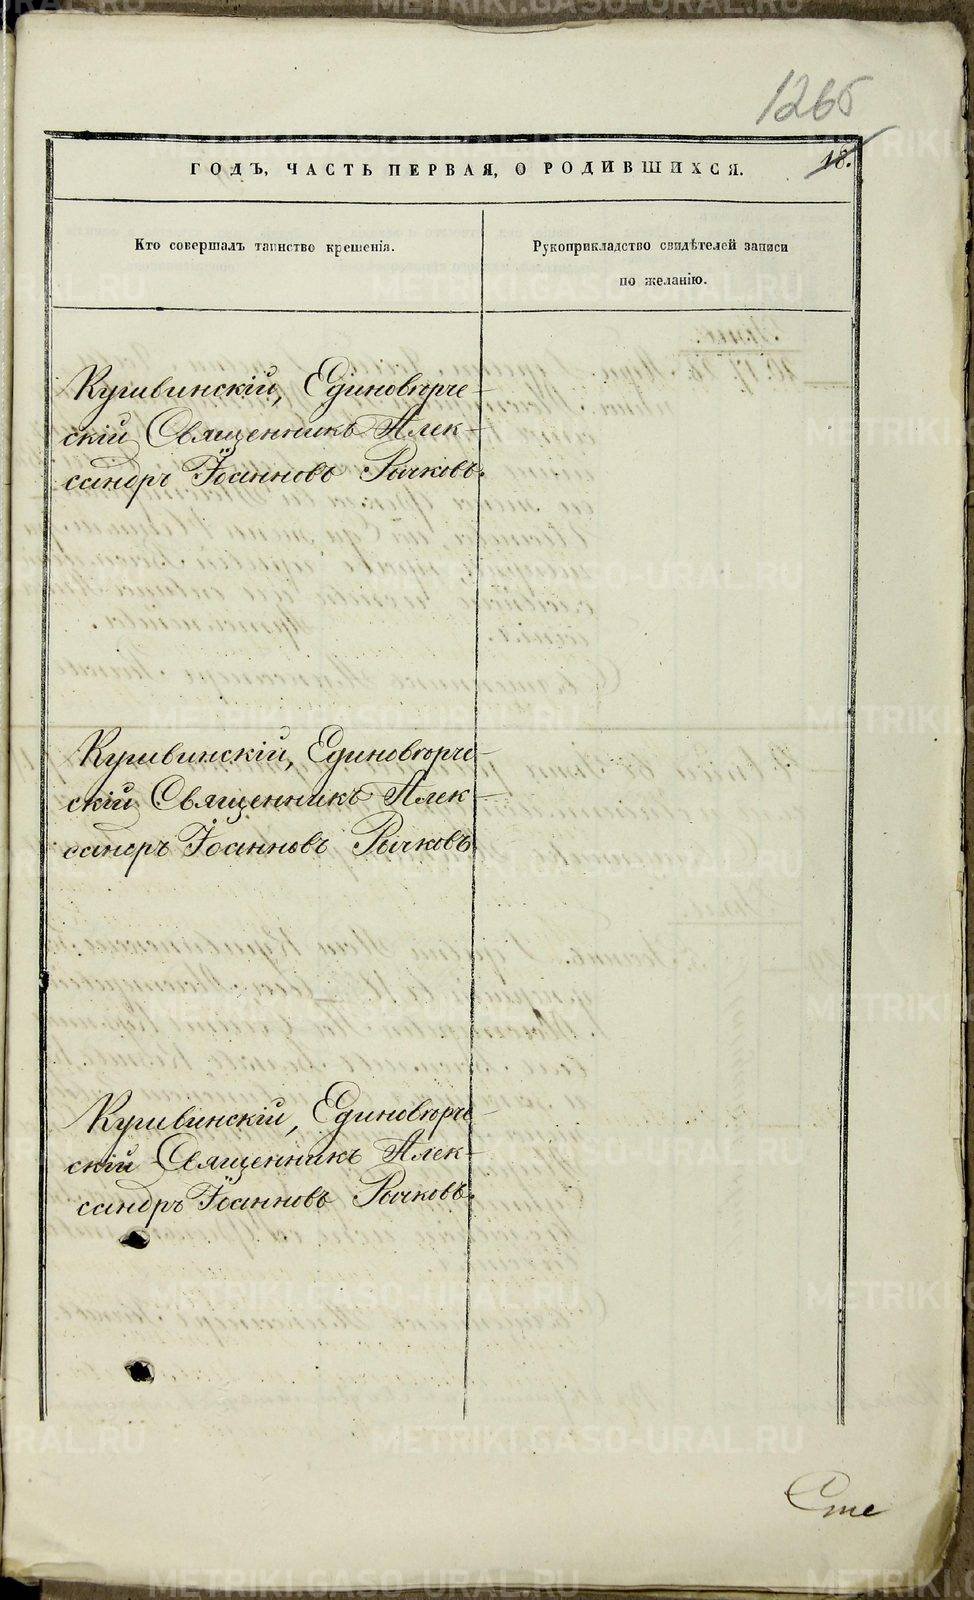 1265
18.
ГОДЪ, ЧАСТЬ ПЕРВАЯ, О РОДИВШИХСЯ.
Кто совершалъ таинство крещенія.
Рукоприкладство свидѣтелей записи
по желанію.
Кушвинскій, Единовѣрче-
скій Священникъ Алек-
сандръ Іоанновъ Рычковъ.
Кушвинскій, Единовѣрче-
скій Священникъ Алек-
сандръ Іоанновъ Рычковъ.
Кушвинскій, Единовѣрче-
скій Священникъ Алек-
сандръ Іоанновъ Рычковъ.
METRIKI.GASO-URAL.RU